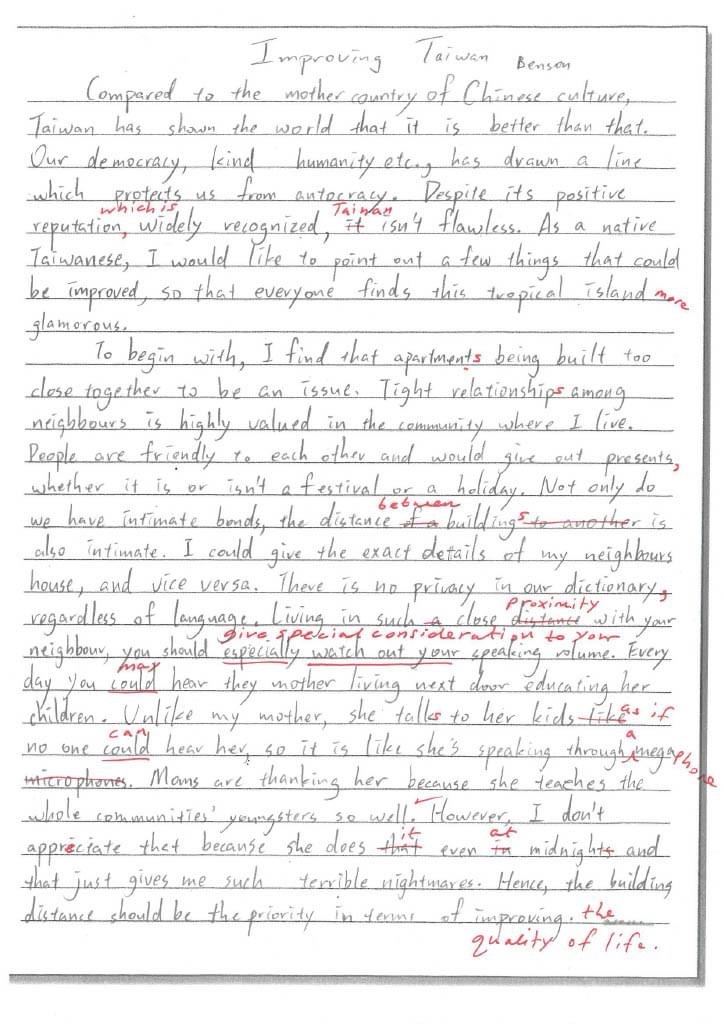 Improving Taiwan Benson
Compared to the mother country of Chinese culture,
Taiwan has shown the world that it is better than that.
Our democracy, kind humanity etc., has drawn a line
which protects us from autocracy. Despite its positive
which is Taiwan
reputation, widely recognized, it isn't flawless. As a native
Taiwanese, I would like to point out a few things that could
be improved, so that everyone finds this tropical island more
glamorous.
To begin with, I find that apartments being built too
close together to be an issue. Tight relationships among
neighbours is highly valued in the community where I live.
People are friendly to each other and would give out presents,
whether it is or isn't a festival or a holiday. Not only do
between
we have intimate bonds, the distance of a buildings to another is
also intimate. I could give the exact details of my neighbours
house, and vice versa. There is no privacy in our dictionary,
proximity
regardless of language. Living in such a close distance with your
give special consideration to your
neighbour, you should especially watch out your speaking volume. Every
may
day you could hear they mother living next door educating her
children. Unlike my mother, she talks to her kids like as if
can a
no one could hear her, so it is like she's speaking through mega phone
microphones. Moms are thanking her because she teaches the
whole communities' youngsters so well. However, I don't
it at
appreciate that because she does that even in midnights and
that just gives me such terrible nightmares. Hence, the building
distance should be the priority in terms of improving. the
quality of life.